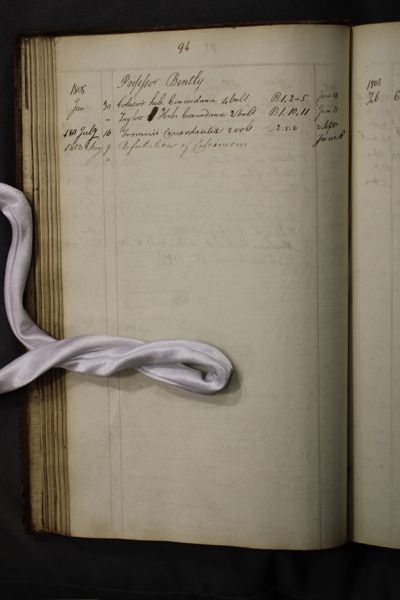 94
Professor Bently
1808
Jan 20 Calasio's heb. Concordance 4 volls B.1,2-5 Jan
" Taylor Heb. Concordance 2 volls B.1.10,11 Jan 11
1811 July 16 Trommii Concordantia 2 volls 2 Sept
1812 May 9 Refutation of Calvinism June 6
1808
Feb 6